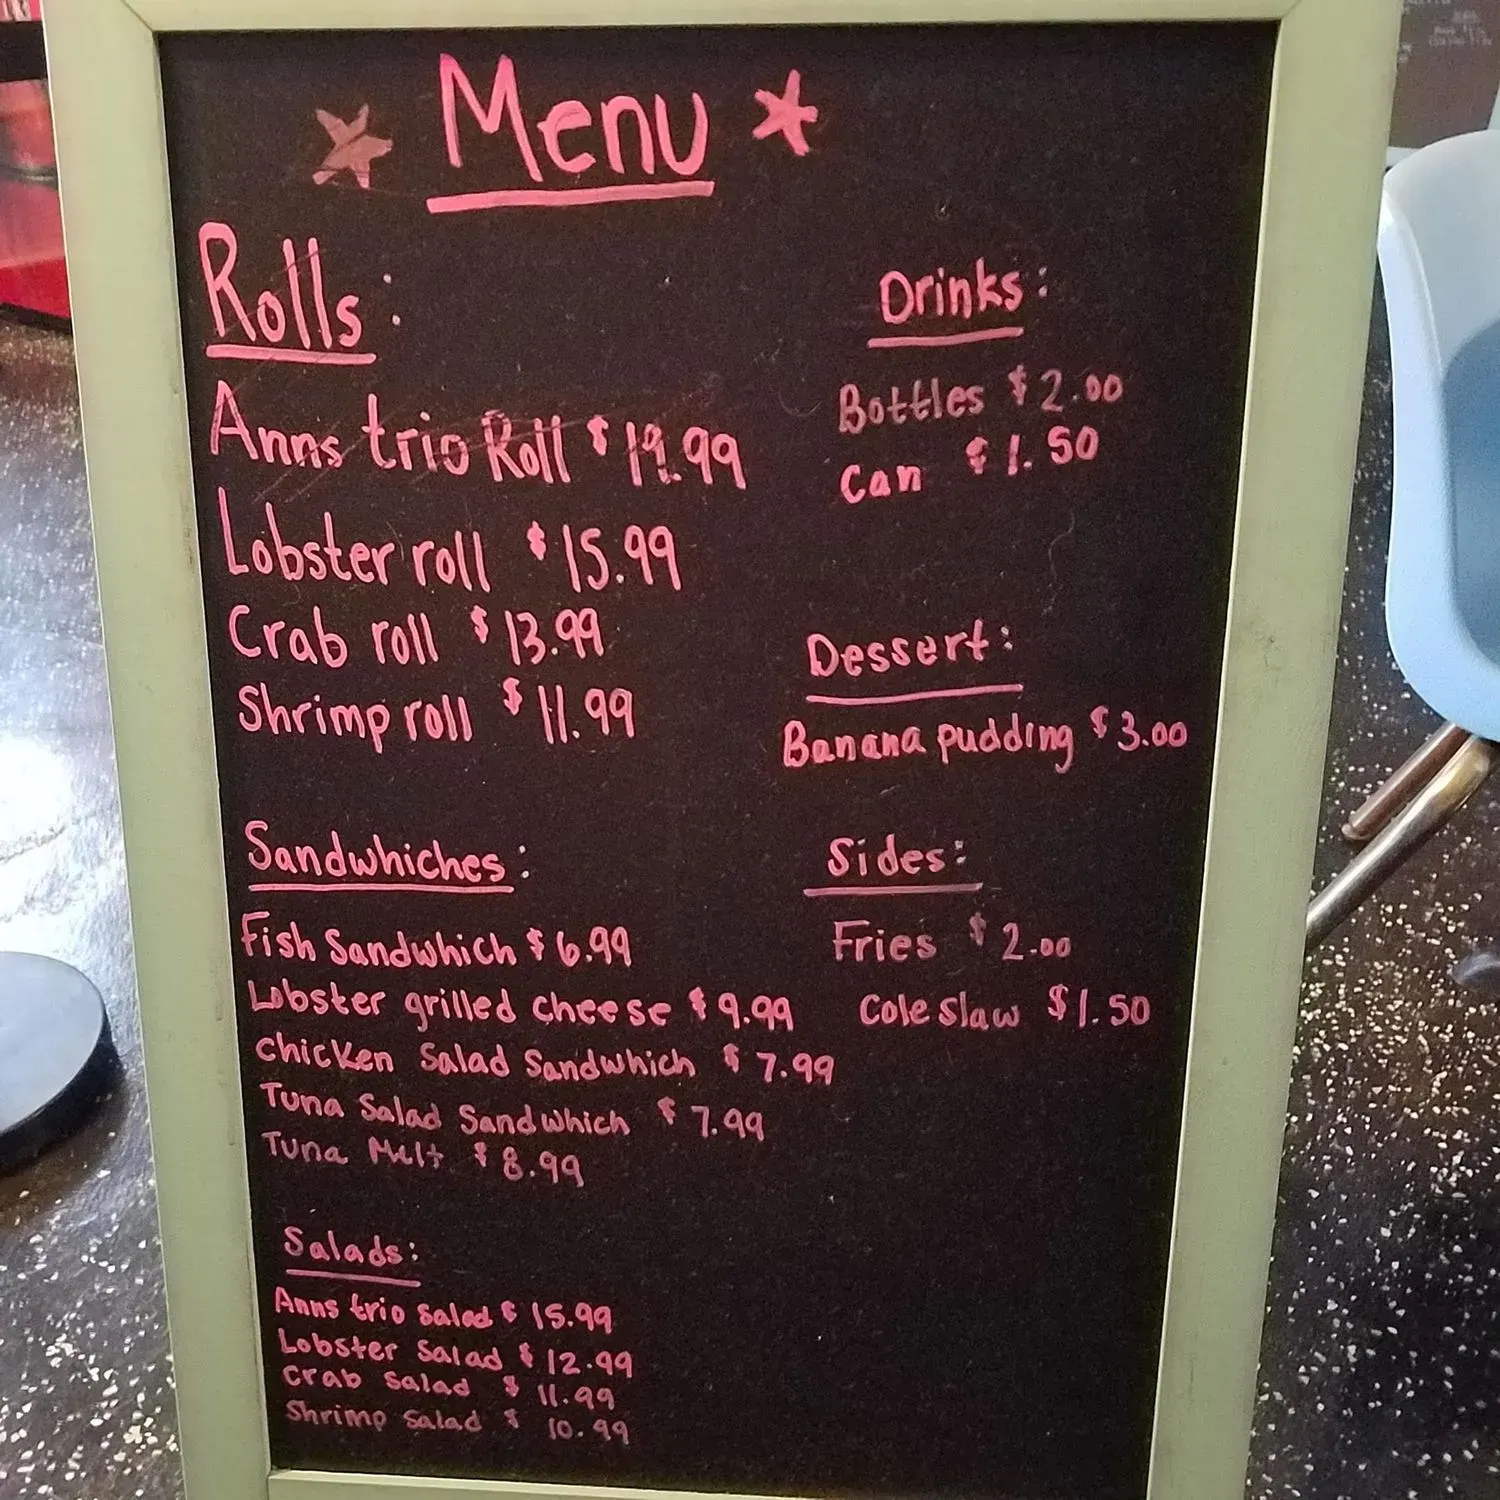 Menu
Rolls:
Anns trio Roll $19.99
Lobster roll $15.99
Crab roll $13.99
Shrimp roll $11.99
Sandwhiches:
Fish Sandwhich $6.99
Lobster grilled cheese $9.99
chicken Salad Sandwhich $7.99
Tuna Salad Sandwhich $7.99
Tuna Melt $8.99
Salads:
Anns trio salad $15.99
Lobster Salad $12.99
Crab Salad $11.99
Shrimp Salad $10.99
Drinks:
Bottles $2.00
Can $1.50
Dessert:
Banana pudding $3.00
Sides:
Fries $2.00
Cole slaw $1.50